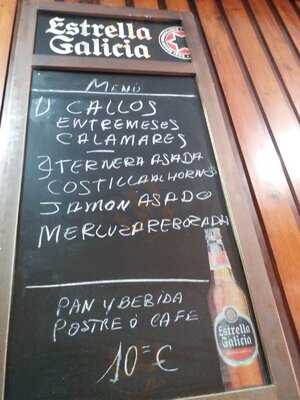 Estrella
Galicia
MENÚ
1) CALLOS
ENTREMESES
CALAMARES
2) TERNERA ASADA
COSTILLA AL HORNO
JAMON ASADO
MERLUZA REBOZADA
PAN Y BEBIDA
POSTRE Ó CAFE
10= €
Estrella
Galicia